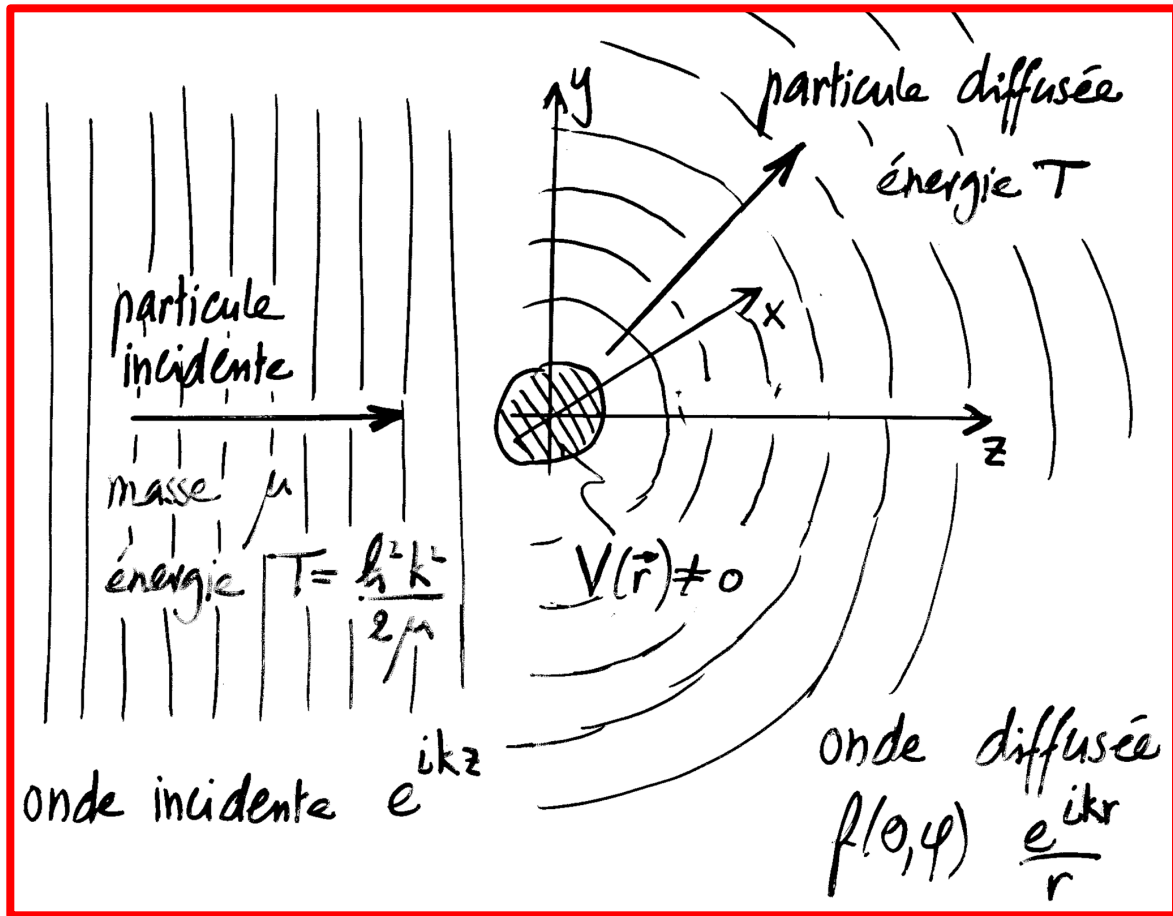 y
particule diffusée
énergie T
particule
incidente
x
z
masse μ
énergie T = ħ²k²/2μ
V(r⃗) ≠ 0
onde incidente e^{ikz}
onde diffusée
f(θ,φ) e^{ikr}/r